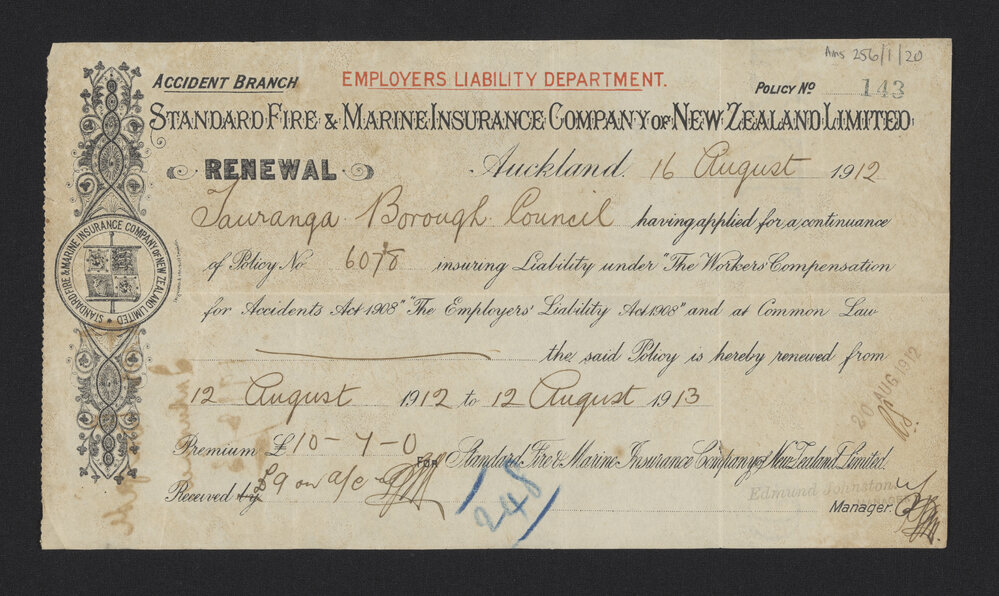 Ams 256/1/20
ACCIDENT BRANCH EMPLOYERS LIABILITY DEPARTMENT. POLICY No 143
STANDARD FIRE & MARINE INSURANCE COMPANY OF NEW ZEALAND LIMITED.
RENEWAL Auckland. 16 August 1912
Tauranga Borough Council having applied for a continuance
of Policy No 6078 insuring Liability under "The Workers' Compensation
for Accidents Act 1908" "The Employers' Liability Act 1908" and at Common Law
the said Policy is hereby renewed from
12 August 1912 to 12 August 1913
20 AUG 1912
Premium £10-4-0 FOR Standard Fire & Marine Insurance Company of New Zealand Limited.
Received by £9 on a/c
248
Edmund Johnston
MANAGER
Manager.
STANDARD FIRE & MARINE INSURANCE COMPANY OF NEW ZEALAND LIMITED